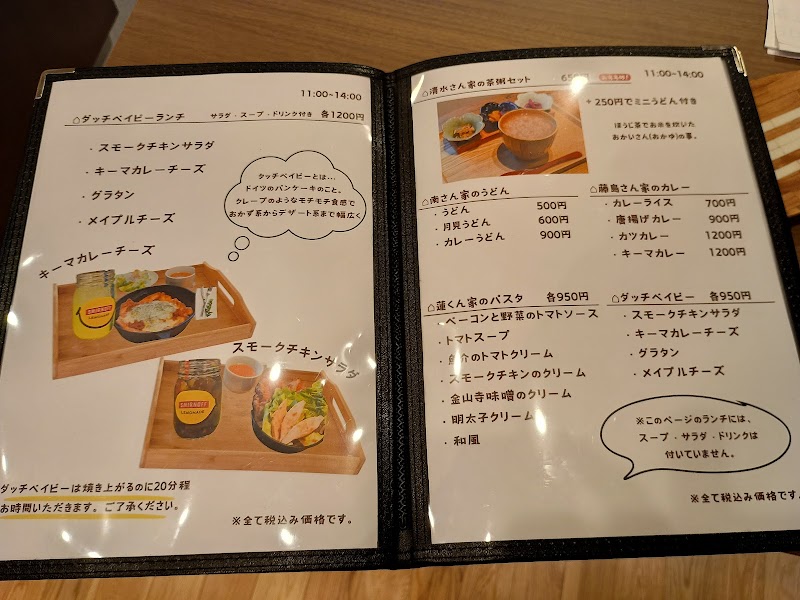 11:00~14:00
⌂ダッチベイビーランチ サラダ・スープ・ドリンク付き 各1200円
・スモークチキンサラダ
・キーマカレーチーズ
・グラタン
・メイプルチーズ
ダッチベイビーとは…
ドイツのパンケーキのこと。
クレープのようなモチモチ食感で
おかず系からデザート系まで幅広く
キーマカレーチーズ
SMIRNOFF
LEMONADE
スモークチキンサラダ
SMIRNOFF
LEMONADE
ダッチベイビーは焼き上がるのに20分程
お時間いただきます。ご了承ください。
※全て税込み価格です。
⌂清水さん家の茶粥セット 11:00~14:00
+250円でミニうどん付き
ほうじ茶でお米を炊いた
おかいさん(おかゆ)の事。
⌂南さん家のうどん
・うどん 500円
・月見うどん 600円
・カレーうどん 900円
⌂藤島さん家のカレー
・カレーライス 700円
・唐揚げカレー 900円
・カツカレー 1200円
・キーマカレー 1200円
⌂蓮くん家のパスタ 各950円
・ベーコンと野菜のトマトソース
・トマトスープ
・魚介のトマトクリーム
・スモークチキンのクリーム
・金山寺味噌のクリーム
・明太子クリーム
・和風
⌂ダッチベイビー 各950円
・スモークチキンサラダ
・キーマカレーチーズ
・グラタン
・メイプルチーズ
※このページのランチには、
スープ・サラダ・ドリンクは
付いていません。
※全て税込み価格です。